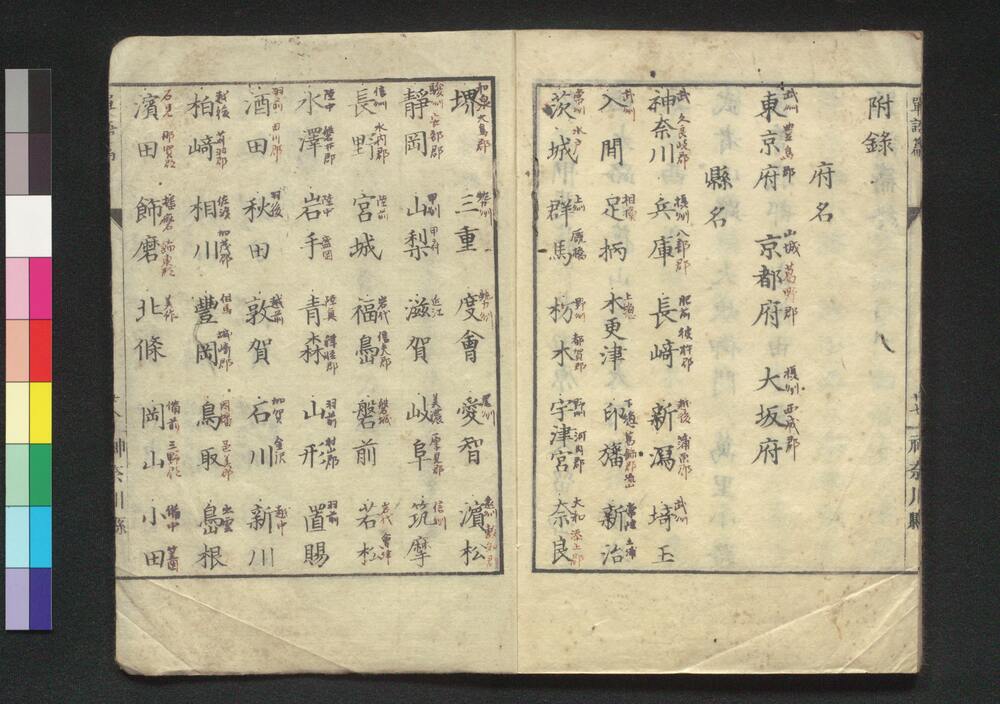 附錄
府名
東京府 京都府 大坂府
武州 豊島郡 山城 葛野郡 摂州 西成郡
縣名
神奈川 兵庫 長﨑 新潟 埼玉
武州 久良岐郡 摂州 八部郡 肥前 彼杵郡 越後 蒲原郡 武州
入間 足柄 木更津 印旛 新治
武州 相模 上総 下總 葛飾郡 流山 常陸 土浦
茨城 群馬 栃木 宇津宮 奈良
常州 水戸 上州 厩橋 野州 都賀郡 野州 河内郡 大和 添上郡
堺 三重 度會 愛智 濱松
和泉 大鳥郡 勢州 勢州 尾州 遠州
靜岡 山梨 滋賀 岐阜 筑摩
駿州 安部郡 甲州 甲府 近江 美濃 厚見郡 信州
長野 宮城 福島 磐前 若松
信州 水内郡 陸前 岩代 信夫郡 磐城 岩代 會津
水澤 岩手 青森 山形 置賜
陸中 磐井郡 陸中 盛岡 陸奥 津軽郡 羽前 村山郡 羽前
酒田 秋田 敦賀 石川 新川
羽前 田川郡 羽後 越前 加賀 金沢 越中
柏﨑 相川 豐岡 鳥取 島根
越後 苅羽郡 佐渡 加茂郡 但馬 城崎郡 因幡 邑美郡 出雲
濱田 飾磨 北條 岡山 小田
石見 那賀郡 播磨 飾東郡 美作 備前 三野郡 備中 笠岡
神奈川縣
神奈川縣